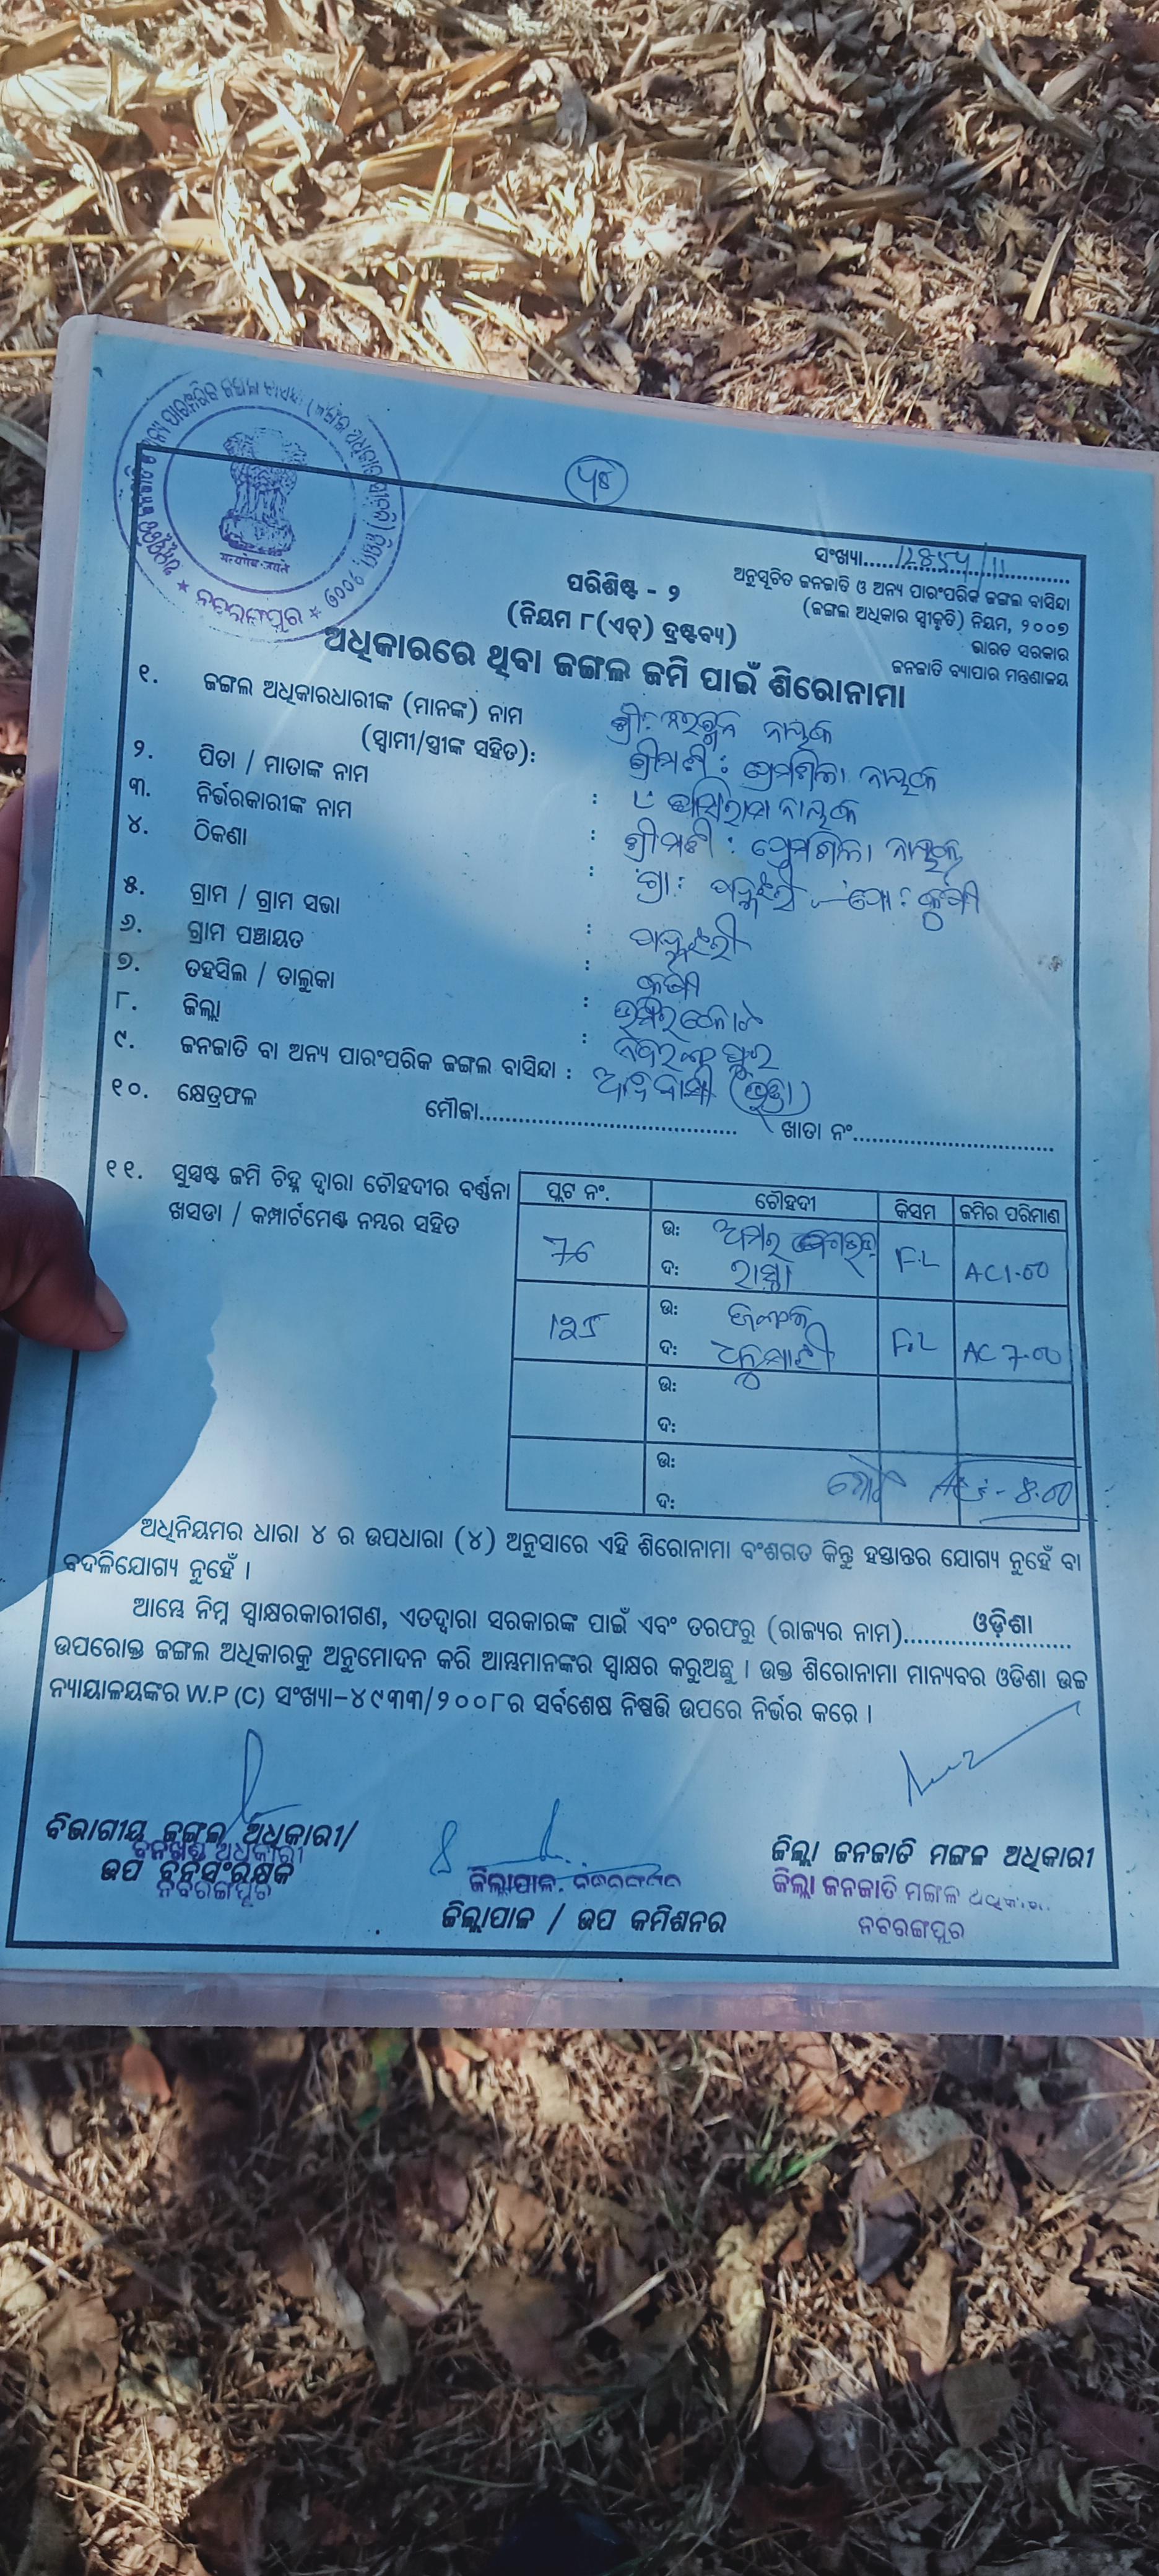 ୪୫
ସଂଖ୍ୟା.....12854/11
ଅନୁସୂଚିତ ଜନଜାତି ଓ ଅନ୍ୟ ପାରଂପରିକ ଜଙ୍ଗଲ ବାସିନ୍ଦା
(ଜଙ୍ଗଲ ଅଧିକାର ସ୍ୱୀକୃତି) ନିୟମ, ୨୦୦୭
ଭାରତ ସରକାର
ଜନଜାତି ବ୍ୟାପାର ମନ୍ତ୍ରଣାଳୟ
ନବରଙ୍ଗପୁର
ପରିଶିଷ୍ଟ - ୨
(ନିୟମ ୮(ଏଚ୍) ଦ୍ରଷ୍ଟବ୍ୟ)
ଅଧିକାରରେ ଥିବା ଜଙ୍ଗଲ ଜମି ପାଇଁ ଶିରୋନାମା
୧. ଜଙ୍ଗଲ ଅଧିକାରଧାରୀଙ୍କ (ମାନଙ୍କ) ନାମ ଶ୍ରୀ: ନାୟକ
(ସ୍ୱାମୀ/ସ୍ତ୍ରୀଙ୍କ ସହିତ): ଶ୍ରୀମତୀ: ପ୍ରେମଶିଳା ନାୟକ
୨. ପିତା / ମାତାଙ୍କ ନାମ : ଘାସିରାମ ନାୟକ
୩. ନିର୍ଭରକାରୀଙ୍କ ନାମ : ଶ୍ରୀମତୀ: ପ୍ରେମଶିଳା ନାୟକ
୪. ଠିକଣା : ଗ୍ରା: ପୋ:
୫. ଗ୍ରାମ / ଗ୍ରାମ ସଭା :
୬. ଗ୍ରାମ ପଞ୍ଚାୟତ :
୭. ତହସିଲ / ତାଲୁକା :
୮. ଜିଲ୍ଲା : ନବରଙ୍ଗପୁର
୯. ଜନଜାତି ବା ଅନ୍ୟ ପାରଂପରିକ ଜଙ୍ଗଲ ବାସିନ୍ଦା : ଆଦିବାସୀ
୧୦. କ୍ଷେତ୍ରଫଳ ମୌଜା..... ଖାତା ନଂ.....
୧୧. ସୁସ୍ପଷ୍ଟ ଜମି ଚିହ୍ନ ଦ୍ୱାରା ଚୌହଦୀର ବର୍ଣ୍ଣନା
ଖସଡା / କମ୍ପାର୍ଟମେଣ୍ଟ ନମ୍ବର ସହିତ
ପ୍ଲଟ ନଂ. ଚୌହଦୀ କିସମ ଜମିର ପରିମାଣ
76 ଉ: F.L AC 1.00
ଦ: ରାସ୍ତା
125 ଉ: ଜଙ୍ଗଲ F.L AC 7.00
ଦ:
ଉ:
ଦ:
ଉ: ମୋଟ AC - 8.00
ଦ:
ଅଧିନିୟମର ଧାରା ୪ ର ଉପଧାରା (୪) ଅନୁସାରେ ଏହି ଶିରୋନାମା ବଂଶଗତ କିନ୍ତୁ ହସ୍ତାନ୍ତର ଯୋଗ୍ୟ ନୁହେଁ ବା
ବଦଳିଯୋଗ୍ୟ ନୁହେଁ ।
ଆମ୍ଭେ ନିମ୍ନ ସ୍ୱାକ୍ଷରକାରୀଗଣ, ଏତଦ୍ୱାରା ସରକାରଙ୍କ ପାଇଁ ଏବଂ ତରଫରୁ (ରାଜ୍ୟର ନାମ)..... ଓଡ଼ିଶା
ଉପରୋକ୍ତ ଜଙ୍ଗଲ ଅଧିକାରକୁ ଅନୁମୋଦନ କରି ଆମ୍ଭମାନଙ୍କର ସ୍ୱାକ୍ଷର କରୁଅଛୁ । ଉକ୍ତ ଶିରୋନାମା ମାନ୍ୟବର ଓଡିଶା ଉଚ୍ଚ
ନ୍ୟାୟାଳୟଙ୍କର W.P (C) ସଂଖ୍ୟା-୪୯୩୩/୨୦୦୮ର ସର୍ବଶେଷ ନିଷ୍ପତ୍ତି ଉପରେ ନିର୍ଭର କରେ ।
ବିଭାଗୀୟ ଜଙ୍ଗଲ ଅଧିକାରୀ/
ବନଖଣ୍ଡ ଅଧିକାରୀ
ଉପ ବନସଂରକ୍ଷକ
ନବରଙ୍ଗପୁର
ଜିଲ୍ଲାପାଳ.
ଜିଲ୍ଲାପାଳ / ଉପ କମିଶନର
ଜିଲ୍ଲା ଜନଜାତି ମଙ୍ଗଳ ଅଧିକାରୀ
ଜିଲ୍ଲା ଜନଜାତି ମଙ୍ଗଳ ଅଧିକାରୀ
ନବରଙ୍ଗପୁର